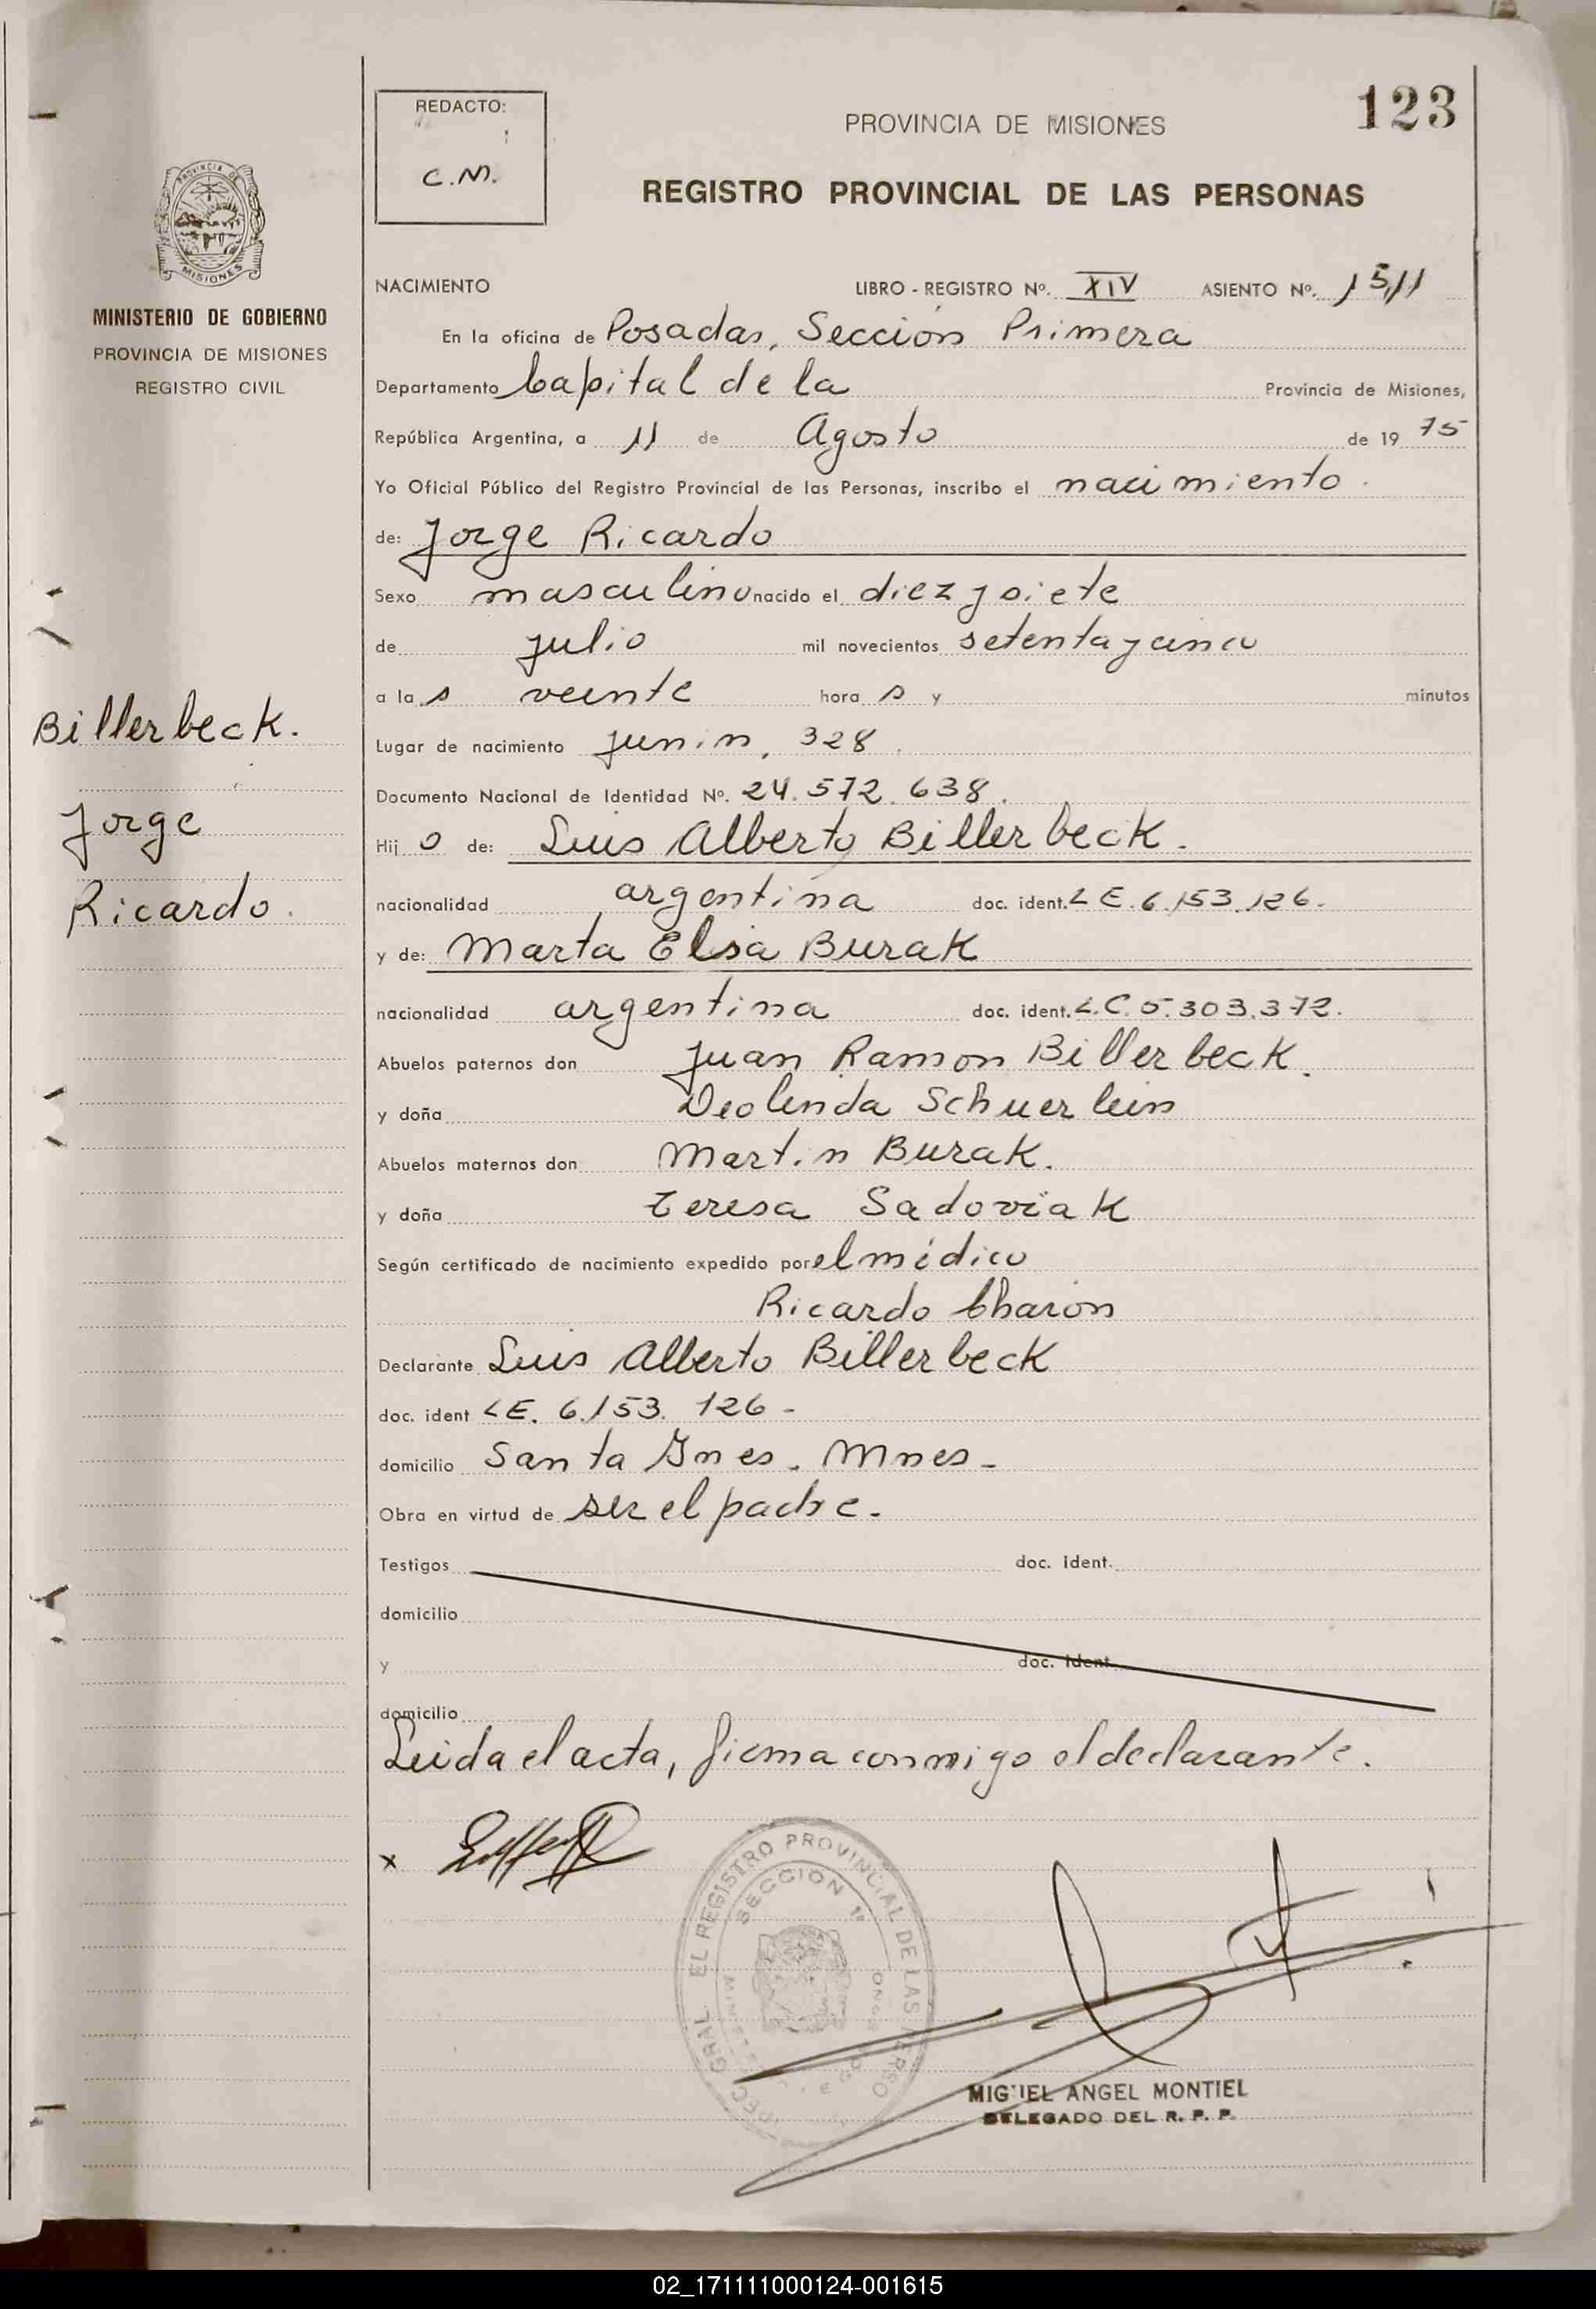 123
REDACTO:
C.M.
PROVINCIA DE MISIONES
REGISTRO PROVINCIAL DE LAS PERSONAS
PROVINCIA DE
MISIONES
MINISTERIO DE GOBIERNO
PROVINCIA DE MISIONES
REGISTRO CIVIL
Billerbeck.
Jorge
Ricardo.
NACIMIENTO LIBRO - REGISTRO Nº. XIV ASIENTO Nº. 1511
En la oficina de Posadas, Sección Primera
Departamento Capital de la Provincia de Misiones,
República Argentina, a 11 de Agosto de 19 75
Yo Oficial Público del Registro Provincial de las Personas, inscribo el nacimiento.
de: Jorge Ricardo
Sexo masculino nacido el diez y siete
de julio mil novecientos setenta y cinco
a la s veinte hora s y minutos
Lugar de nacimiento Junin, 328.
Documento Nacional de Identidad Nº. 24.572.638.
Hij o de: Luis Alberto Billerbeck.
nacionalidad argentina doc. ident. LE. 6.153.126.
y de: Marta Elsa Burak
nacionalidad argentina doc. ident. L.C. 5.303.372.
Abuelos paternos don Juan Ramon Billerbeck.
y doña Deolinda Schuerlein
Abuelos maternos don Martin Burak.
y doña Teresa Sadoviak
Según certificado de nacimiento expedido por el médico
Ricardo Charon
Declarante Luis Alberto Billerbeck
doc. ident LE. 6.153.126-
domicilio Santa Ines. Mnes-
Obra en virtud de ser el padre.
Testigos doc. ident.
domicilio
y doc. ident.
domicilio
Leida el acta, firma conmigo el declarante.
x
EL REGISTRO PROVINCIAL DE LAS PERSO
SECCION 1ª
MIGUEL ANGEL MONTIEL
DELEGADO DEL R. P. P.
02_171111000124-001615